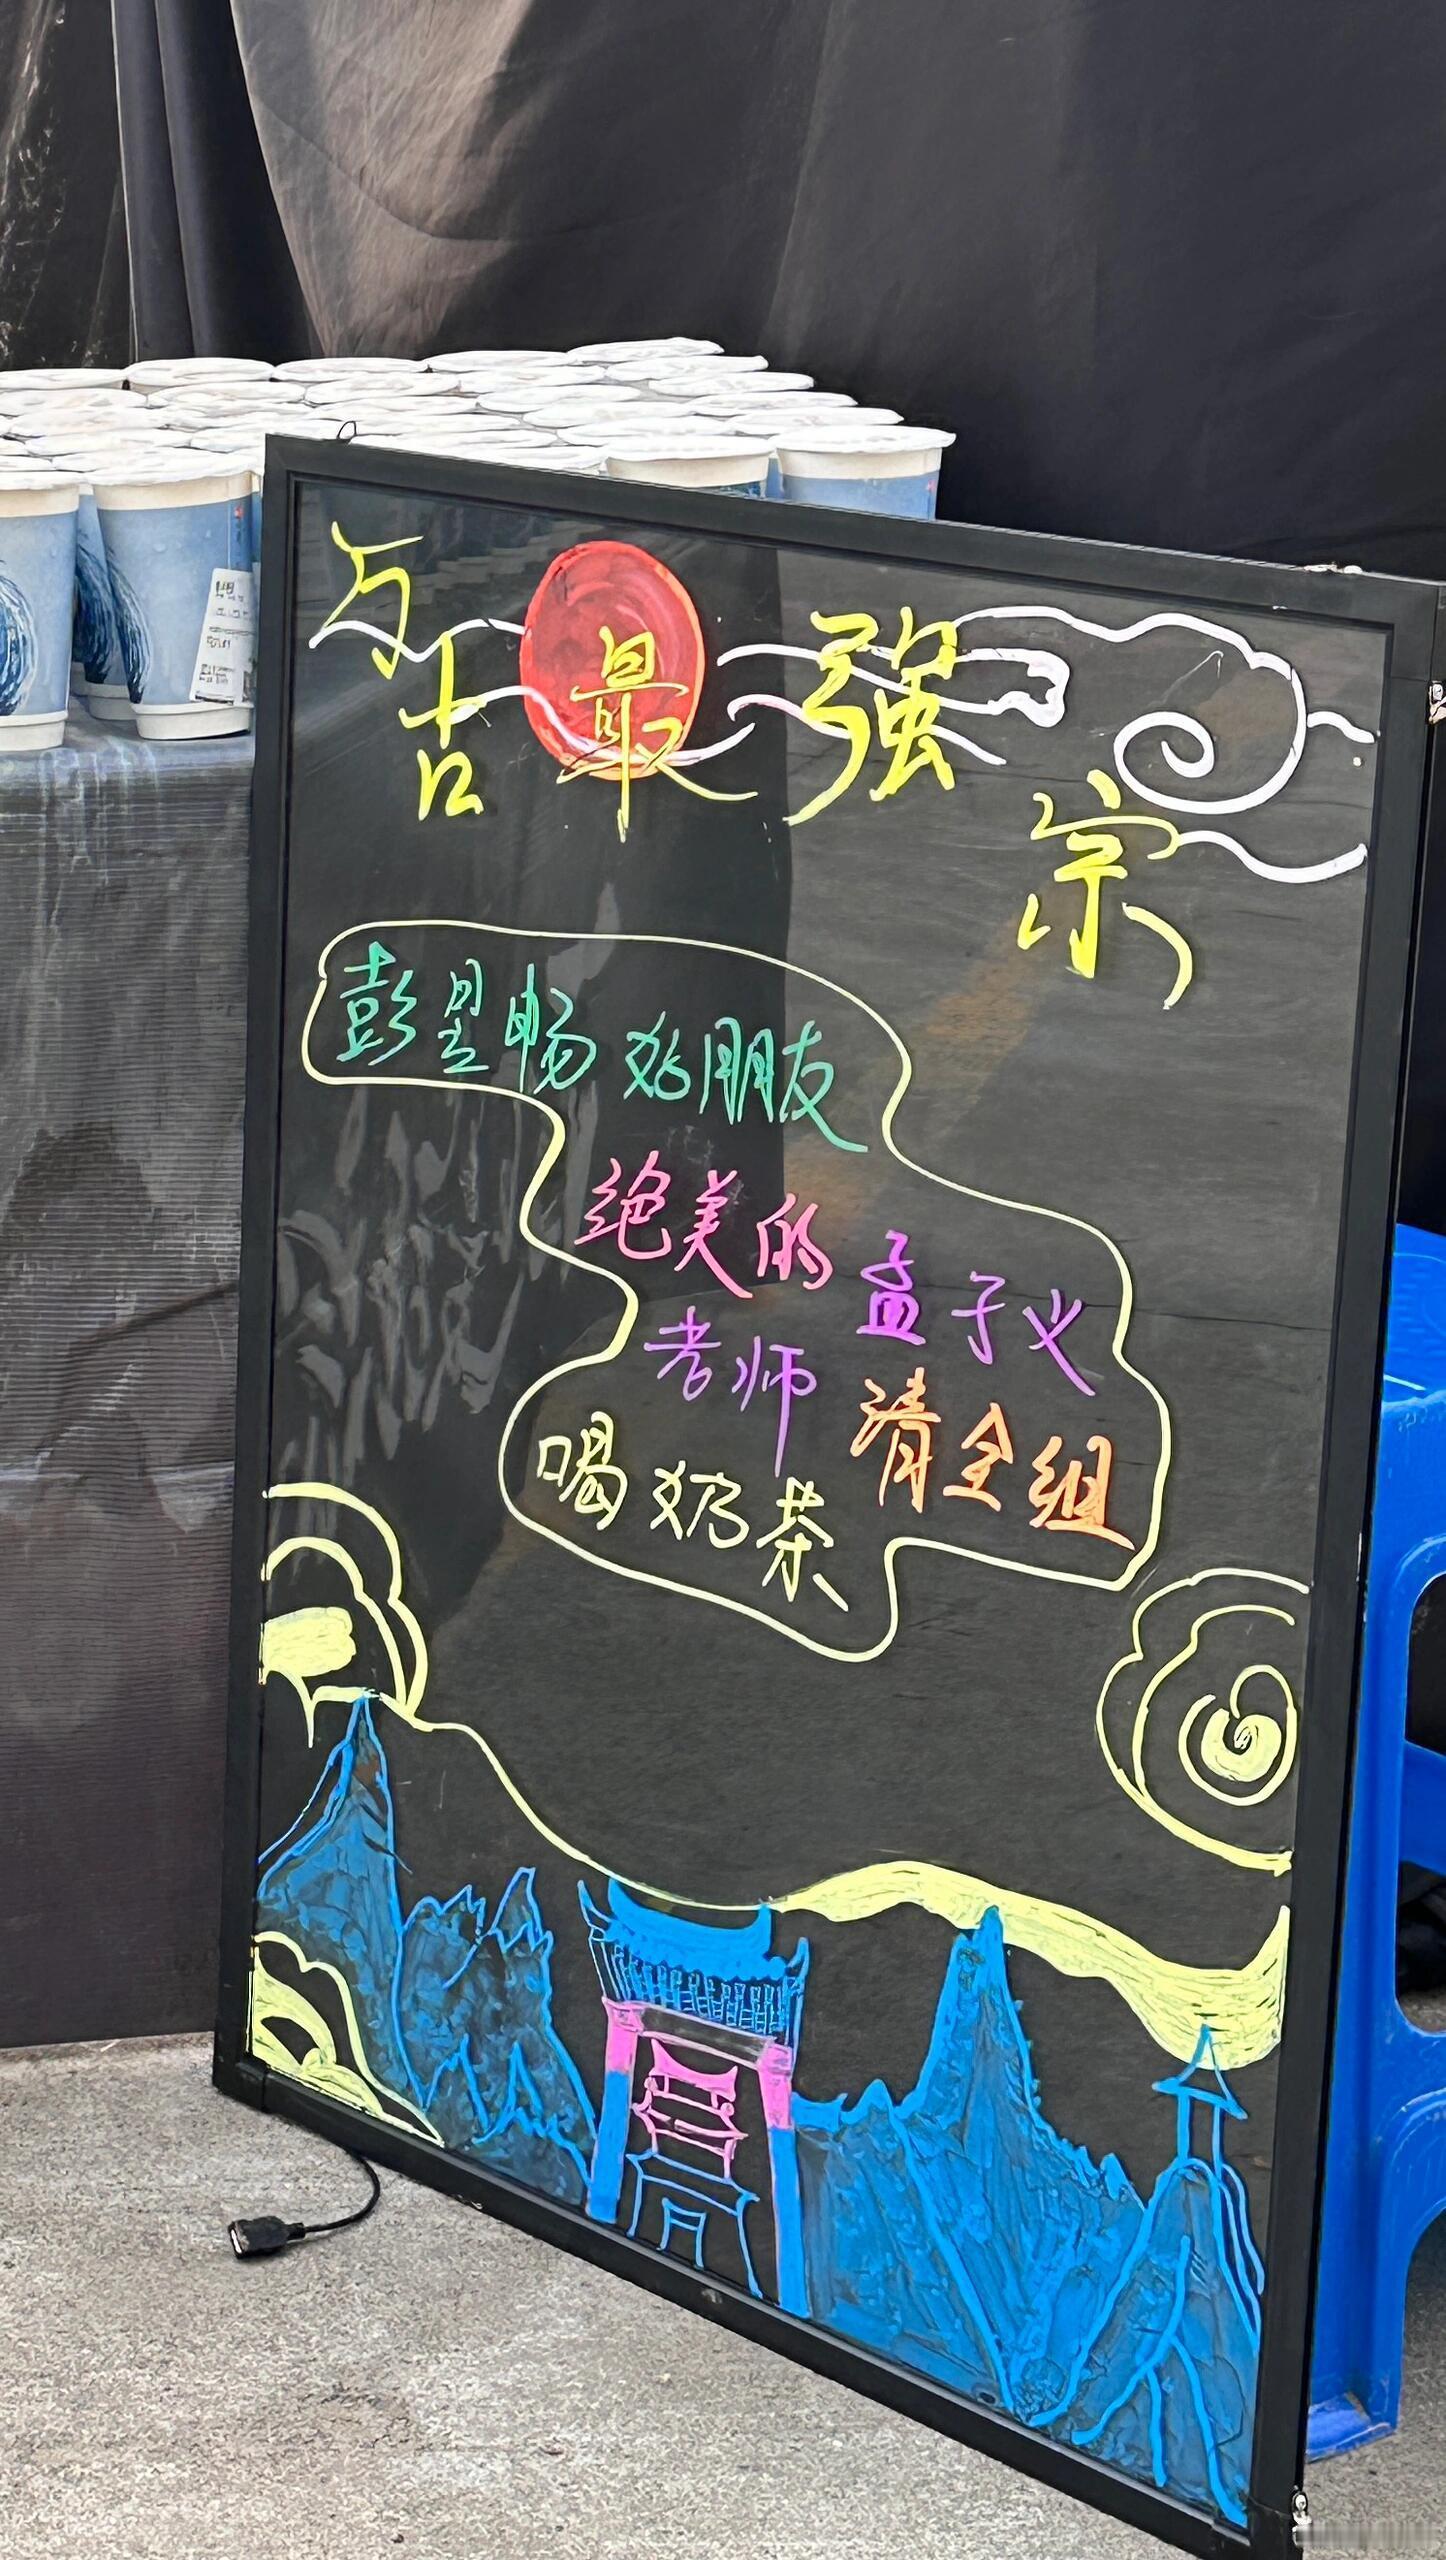 万古最强宗
彭昱畅 好朋友
绝美的 孟子义
老师 请全组
喝奶茶